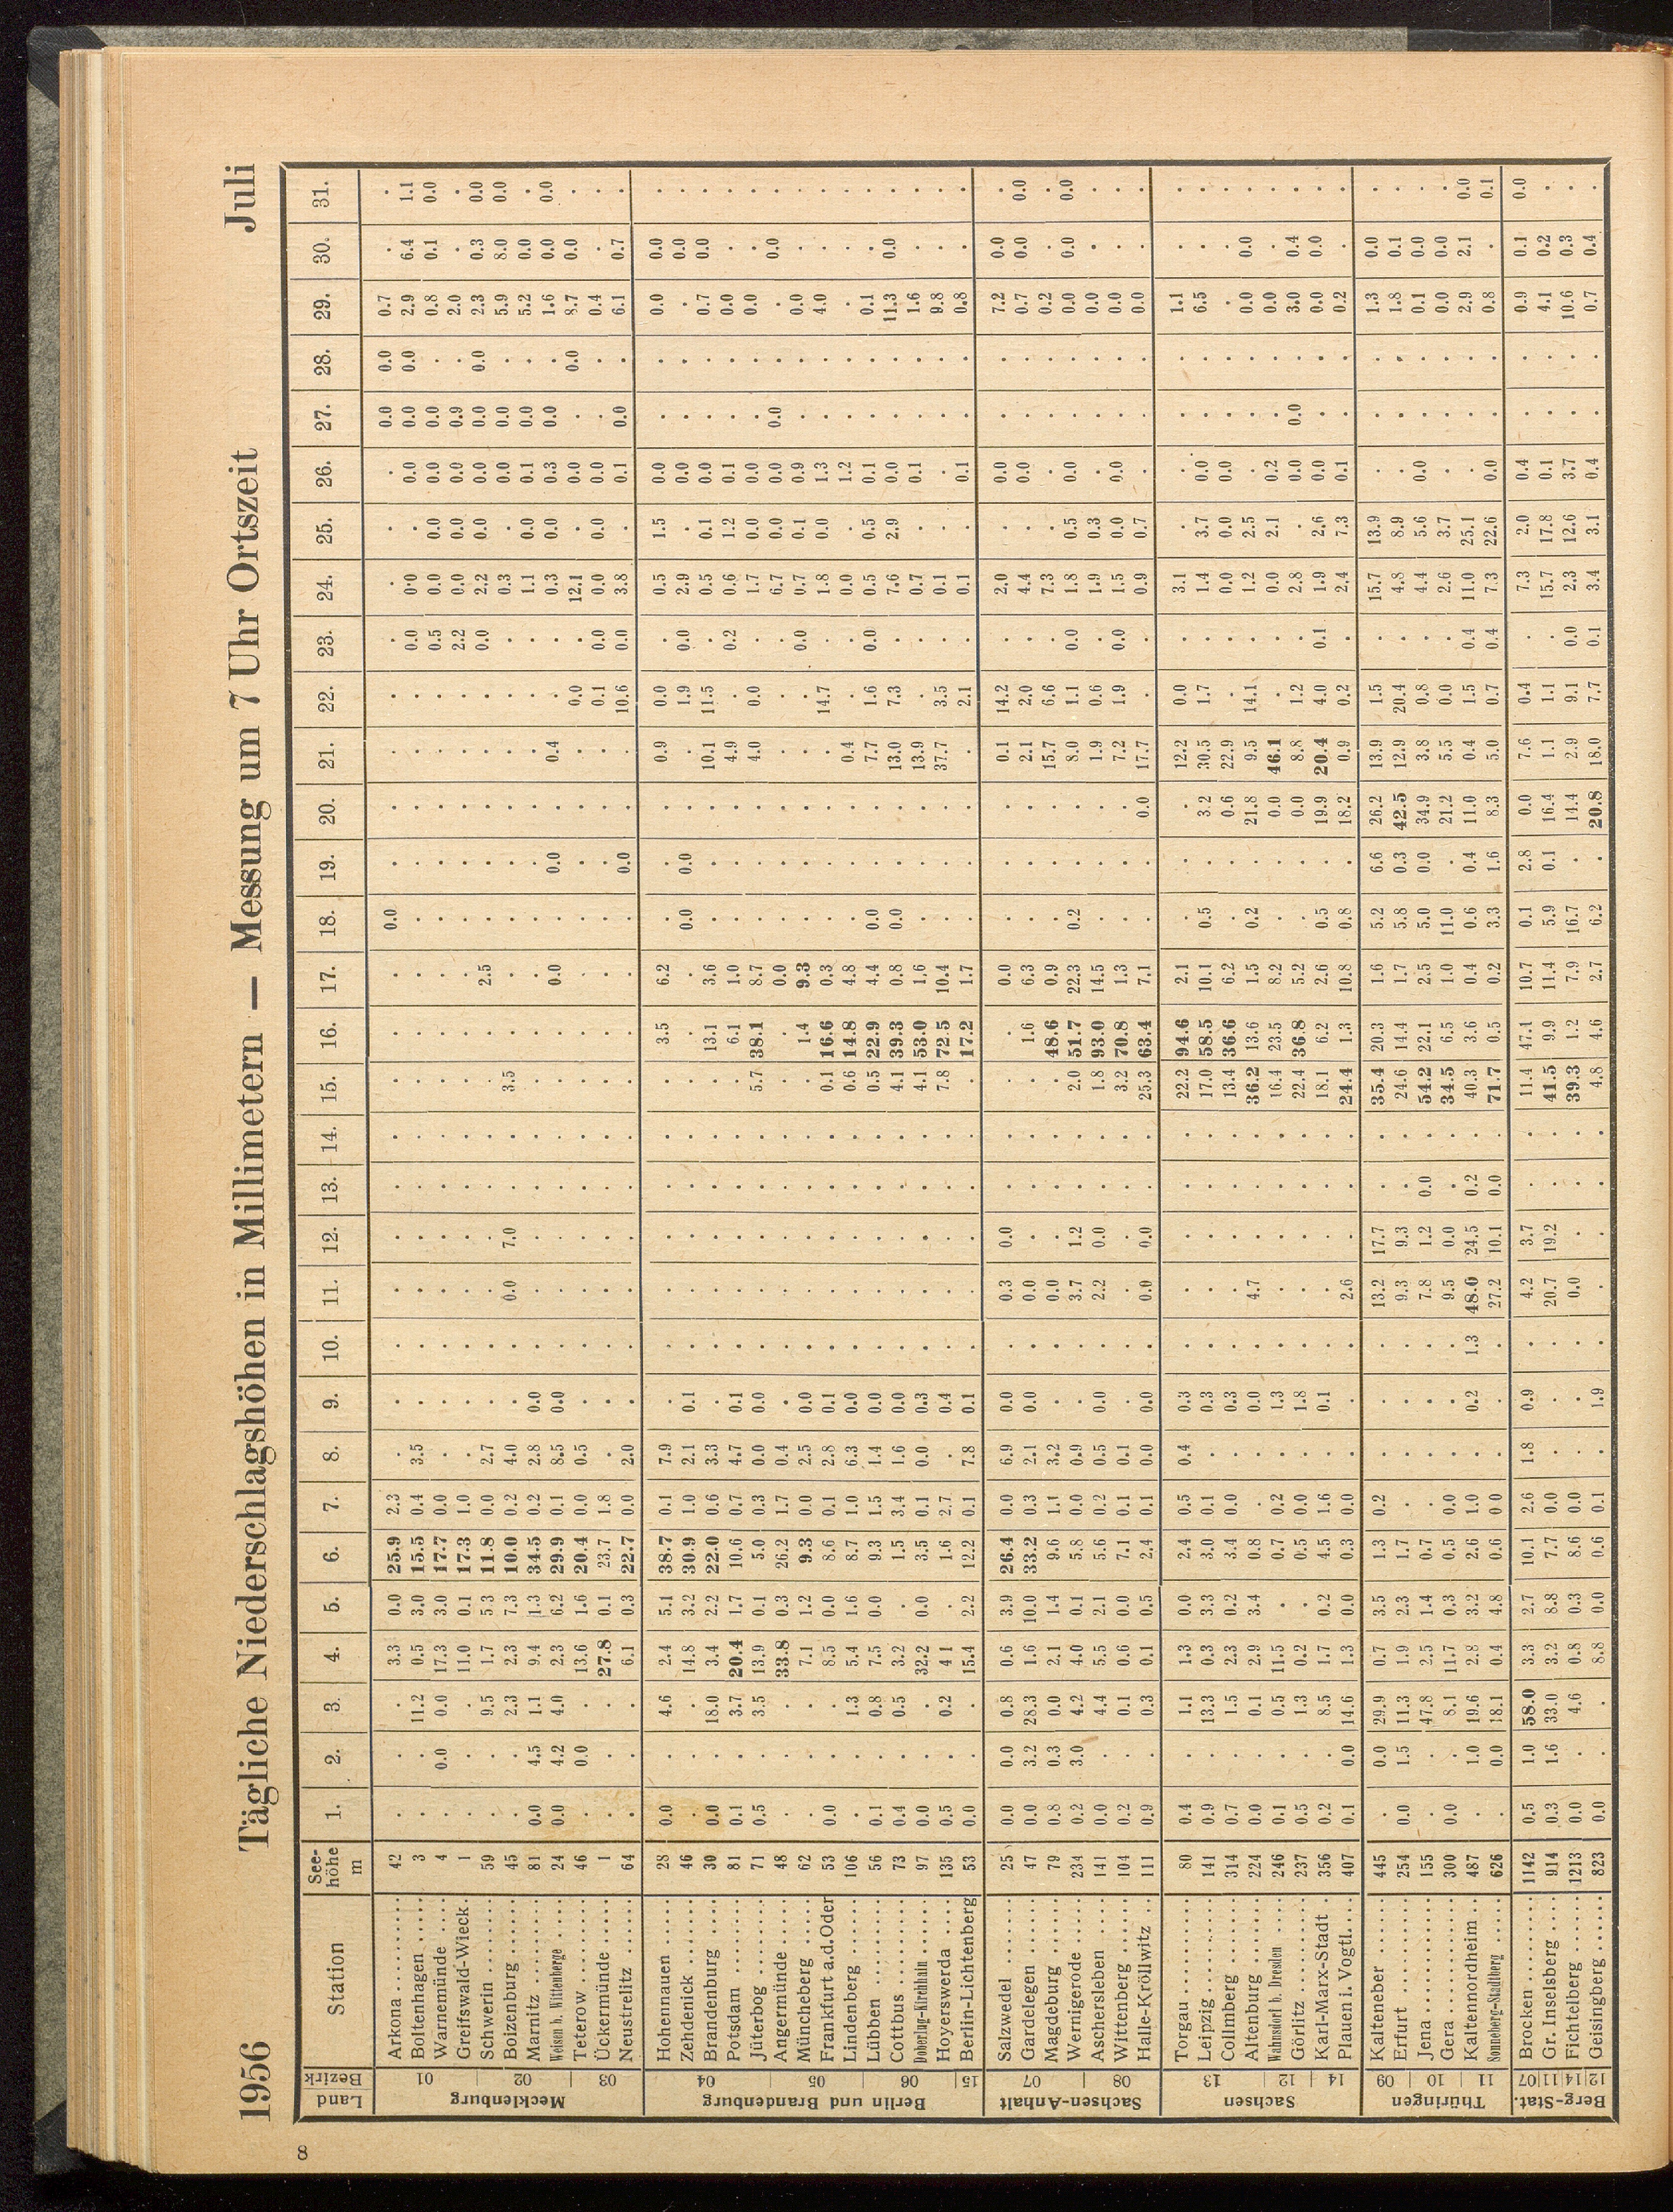 8
1956 Tägliche Niederschlagshöhen in Millimetern — Messung um 7 Uhr Ortszeit Juli
Land Bezirk Station See-höhe m 1. 2. 3. 4. 5. 6. 7. 8. 9. 10. 11. 12. 13. 14. 15. 16. 17. 18. 19. 20. 21. 22. 23. 24. 25. 26. 27. 28. 29. 30. 31.
Mecklenburg
01 02 03
Arkona 42 . . . 3.3 0.0 25.9 2.3 . . . . . . . . . . 0.0 . . . . . . . . 0.0 0.0 0.7 . .
Boltenhagen 3 . . 11.2 0.5 3.0 15.5 0.4 3.5 . . . . . . . . . . . . . . 0.0 0.0 . 0.0 0.0 0.0 2.9 6.4 1.1
Warnemünde 4 . 0.0 0.0 17.3 3.0 17.7 0.0 . . . . . . . . . . . . . . . 0.5 0.0 0.0 0.0 0.0 . 0.8 0.1 0.0
Greifswald-Wieck 1 . . . 11.0 0.1 17.3 1.0 . . . . . . . . . . . . . . . 2.2 0.0 0.0 0.0 0.9 . 2.0 . .
Schwerin 59 . . 9.5 1.7 5.3 11.8 0.0 2.7 . . . . . . . . 2.5 . . . . . 0.0 2.2 0.0 0.0 0.0 0.0 2.3 0.3 0.0
Boizenburg 45 . . 2.3 2.3 7.3 10.0 0.2 4.0 . . 0.0 7.0 . . 3.5 . . . . . . . . 0.3 . 0.0 0.0 . 5.9 8.0 0.0
Marnitz 81 0.0 4.5 1.1 9.4 1.3 34.5 0.2 2.8 0.0 . . . . . . . . . . . . . . 1.1 0.0 0.1 0.0 . 5.2 0.0 .
Weisen b. Wittenberge 24 0.0 4.2 4.0 2.3 6.2 29.9 0.1 8.5 0.0 . . . . . . . 0.0 . 0.0 . 0.4 . . 0.3 0.0 0.3 0.0 . 1.6 0.0 0.0
Teterow 46 . 0.0 . 13.6 1.6 20.4 0.0 0.5 . . . . . . . . . . . . . 0.0 . 12.1 . 0.0 . 0.0 8.7 0.0 .
Ückermünde 1 . . . 27.8 0.1 23.7 1.8 . . . . . . . . . . . . . . 0.1 0.0 0.0 0.0 0.0 . . 0.4 . .
Neustrelitz 64 . . . 6.1 0.3 22.7 0.0 2.0 . . . . . . . . . . 0.0 . . 10.6 0.0 3.8 . 0.1 0.0 . 6.1 0.7 .
Berlin und Brandenburg
04 05 06 15
Hohennauen 28 0.0 . 4.6 2.4 5.1 38.7 0.1 7.9 . . . . . . . 3.5 6.2 . . . 0.9 0.0 . 0.5 1.5 0.0 . . 0.0 0.0 .
Zehdenick 46 . . . 14.8 3.2 30.9 1.0 2.1 0.1 . . . . . . . . 0.0 0.0 . . 1.9 0.0 2.9 . 0.0 . . . 0.0 .
Brandenburg 30 0.0 . 18.0 3.4 2.2 22.0 0.6 3.3 . . . . . . . 13.1 3.6 . . . 10.1 11.5 . 0.5 0.1 0.0 . . 0.7 0.0 .
Potsdam 81 0.1 . 3.7 20.4 1.7 10.6 0.7 4.7 0.1 . . . . . . 6.1 1.0 . . . 4.9 . 0.2 0.6 1.2 0.1 . . 0.0 . .
Jüterbog 71 0.5 . 3.5 13.9 0.1 5.0 0.3 0.0 0.0 . . . . . 5.7 38.1 8.7 . . . 4.0 0.0 . 1.7 0.0 0.0 . . 0.0 . .
Angermünde 48 . . . 33.8 0.3 26.2 1.7 0.4 . . . . . . . . 0.0 . . . . . . 6.7 0.0 0.0 0.0 . . 0.0 .
Müncheberg 62 . . . 7.1 1.2 9.3 0.0 2.5 0.0 . . . . . . 1.4 9.3 . . . . . 0.0 0.7 0.1 0.9 . . 0.0 . .
Frankfurt a.d.Oder 53 0.0 . . 8.5 0.0 8.6 0.1 2.8 0.1 . . . . . 0.1 16.6 0.3 . . . . 14.7 . 1.8 0.0 1.3 . . 4.0 . .
Lindenberg 106 . . 1.3 5.4 1.6 8.7 1.0 6.3 0.0 . . . . . 0.6 14.8 4.8 . . . 0.4 . . 0.0 . 1.2 . . . . .
Lübben 56 0.1 . 0.8 7.5 0.0 9.3 1.5 1.4 0.0 . . . . . 0.5 22.9 4.4 0.0 . . 7.7 1.6 0.0 0.5 0.5 0.1 . . 0.1 . .
Cottbus 73 0.4 . 0.5 3.2 . 1.5 3.4 1.6 0.0 . . . . . 4.1 39.3 0.8 0.0 . . 13.0 7.3 . 7.6 2.9 0.0 . . 11.3 0.0 .
Doberlug-Kirchhain 97 0.0 . . 32.2 0.0 3.5 0.1 0.0 0.3 . . . . . 4.1 53.0 1.6 . . . 13.9 . . 0.7 . 0.1 . . 1.6 . .
Hoyerswerda 135 0.5 . 0.2 4 1 . 1.6 2.7 . 0.4 . . . . . 7.8 72.5 10.4 . . . 37.7 3.5 . 0.1 . . . . 9.8 . .
Berlin-Lichtenberg 53 0.0 . . 15.4 2.2 12.2 0.1 7.8 0.1 . . . . . . 17.2 1.7 . . . . 2.1 . 0.1 . 0.1 . . 0.8 . .
Sachsen-Anhalt
07 08
Salzwedel 25 0.0 0.0 0.8 0.6 3.9 26.4 0.0 6.9 0.0 . 0.3 0.0 . . . . 0.0 . . . 0.1 14.2 . 2.0 . 0.0 . . 7.2 0.0 .
Gardelegen 47 0.0 3.2 28.3 1.6 10.0 33.2 0.3 2.1 0.0 . 0.0 . . . . 1.6 6.3 . . . 2.1 2.0 . 4.4 . 0.0 . . 0.7 0.0 0.0
Magdeburg 79 0.8 0.3 0.0 2.1 1.4 9.6 1.1 3.2 . . 0.0 . . . . 48.6 0.9 . . . 15.7 6.6 . 7.3 . . . . 0.2 . .
Wernigerode 234 0.2 3.0 4.2 4.0 0.1 5.8 0.0 0.9 . . 3.7 1.2 . . 2.0 51.7 22.3 0.2 . . 8.0 1.1 0.0 1.8 0.5 0.0 . . 0.0 0.0 0.0
Aschersleben 141 0.0 . 4.4 5.5 2.1 5.6 0.2 0.5 0.0 . 2.2 0.0 . . 1.8 93.0 14.5 . . . 1.9 0.6 . 1.9 0.3 . . . 0.0 . .
Wittenberg 104 0.2 . 0.1 0.6 0.0 7.1 0.1 0.1 . . . . . . 3.2 70.8 1.3 . . . 7.2 1.9 0.0 1.5 0.0 0.0 . . 0.0 . .
Halle-Kröllwitz 111 0.9 . 0.3 0.1 0.5 2.4 0.1 0.0 0.0 . 0.0 0.0 . . 25.3 63.4 7.1 . . 0.0 17.7 . . 0.9 0.7 . . . 0.0 . .
Sachsen
13 12 14
Torgau 80 0.4 . 1.1 1.3 0.0 2.4 0.5 0.4 0.3 . . . . . 22.2 94.6 2.1 . . . 12.2 0.0 . 3.1 . . . . 1.1 . .
Leipzig 141 0.9 . 13.3 0.3 3.3 3.0 0.1 . 0.3 . . . . . 17.0 58.5 10.1 0.5 . 3.2 30.5 1.7 . 1.4 3.7 0.0 . . 6.5 . .
Collmberg 314 0.7 . 1.5 2.3 0.2 3.4 0.0 . 0.3 . . . . . 13.4 36.6 6.2 . . 0.6 22.9 . . 0.0 0.0 0.0 . . . . .
Altenburg 224 0.0 . 0.1 2.9 3.4 0.8 . . 0.0 . 4.7 . . . 36.2 13.6 1.5 0.2 . 21.8 9.5 14.1 . 1.2 2.5 . . . 0.0 0.0 .
Wahnsdorf b. Dresden 246 0.1 . 0.5 11.5 . 0.7 0.2 . 1.3 . . . . . 16.4 23.5 8.2 . . 0.0 46.1 . . 0.0 2.1 0.2 . . 0.0 . .
Görlitz 237 0.5 . 1.3 0.2 . 0.5 0.0 . 1.8 . . . . . 22.4 36.8 5.2 . . 0.0 8.8 1.2 . 2.8 . 0.0 0.0 . 3.0 0.4 .
Karl-Marx-Stadt 356 0.2 . 8.5 1.7 0.2 4.5 1.6 . 0.1 . . . . . 18.1 6.2 2.6 0.5 . 19.9 20.4 4.0 0.1 1.9 2.6 0.0 . . 0.0 0.0 .
Plauen i. Vogtl. 407 0.1 0.0 14.6 1.3 0.0 0.3 0.0 . . . 2.6 . . . 24.4 1.3 10.8 0.8 . 18.2 0.9 0.2 . 2.4 7.3 0.1 . . 0.2 . .
Thüringen
09 10 11
Kalteneber 445 . 0.0 29.9 0.7 3.5 1.3 0.2 . . . 13.2 17.7 . . 35.4 20.3 1.6 5.2 6.6 26.2 13.9 1.5 . 15.7 13.9 . . . 1.3 0.0 .
Erfurt 254 0.0 1.5 11.3 1.9 2.3 1.7 . . . . 9.3 9.3 . . 24.6 14.4 1.7 5.8 0.3 42.5 12.9 20.4 . 4.8 8.9 . . . 1.8 0.1 .
Jena 155 . . 47.8 2.5 1.4 0.7 . . . . 7.8 1.2 0.0 . 54.2 22.1 2.5 5.0 0.0 34.9 3.8 0.8 . 4.4 5.6 0.0 . . 0.1 0.0 .
Gera 300 0.0 . 8.1 11.7 0.3 0.5 0.0 . . . 9.5 0.0 . . 34.5 6.5 1.0 11.0 . 21.2 5.5 0.0 . 2.6 3.7 . . . 0.0 0.0 .
Kaltennordheim 487 . 1.0 19.6 2.8 3.2 2.6 1.0 . 0.2 1.3 48.0 24.5 0.2 . 40.3 3.6 0.4 0.6 0.4 11.0 0.4 1.5 0.4 11.0 25.1 . . . 2.9 2.1 0.0
Sonneberg-Stadtberg 626 . 0.0 18.1 0.4 4.8 0.6 0 0 . . . 27.2 10.1 0.0 . 71.7 0.5 0.2 3.3 1.6 8.3 5.0 0.7 0.4 7.3 22.6 0.0 . . 0.8 . 0.1
Berg-Stat.
07 11 14 12
Brocken 1142 0.5 1.0 58.0 3.3 2.7 10.1 2.6 1.8 0.9 . 4.2 3.7 . . 11.4 47.1 10.7 0.1 2.8 0.0 7.6 0.4 . 7.3 2.0 0.4 . . 0.9 0.1 0.0
Gr. Inselsberg 914 0.3 1.6 33.0 3.2 8.8 7.7 0.0 . . . 20.7 19.2 . . 41.5 9.9 11.4 5.9 0.1 16.4 1.1 1.1 . 15.7 17.8 0.1 . . 4.1 0.2 .
Fichtelberg 1213 0.0 . 4.6 0.8 0.3 8.6 0.0 . . . 0.0 . . . 39.3 1.2 7.9 16.7 . 14.4 2.9 9.1 0.0 2.3 12.6 3.7 . . 10.6 0.3 .
Geisingberg 823 0.0 . . 8.8 0.0 0.6 0.1 . 1.9 . . . . . 4.8 4.6 2.7 6.2 . 20.8 18.0 7.7 0.1 3.4 3.1 0.4 . . 0.7 0.4 .